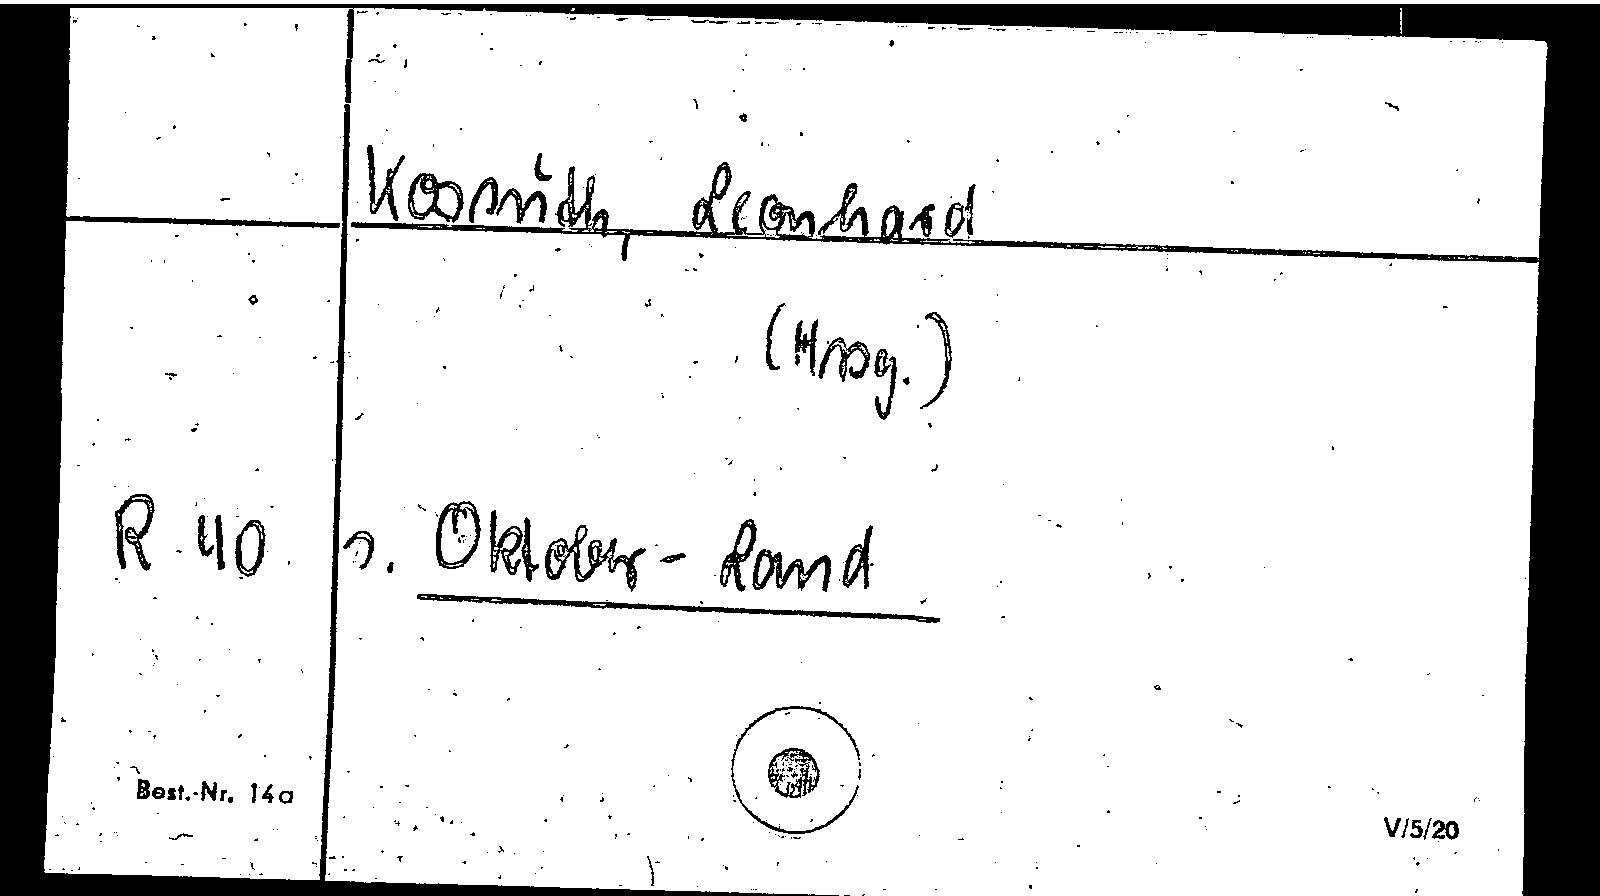 Kossuth, Leonhard
(Hrsg.)
R 40 s. Oktober-Land
Best.-Nr. 14a
V/5/20